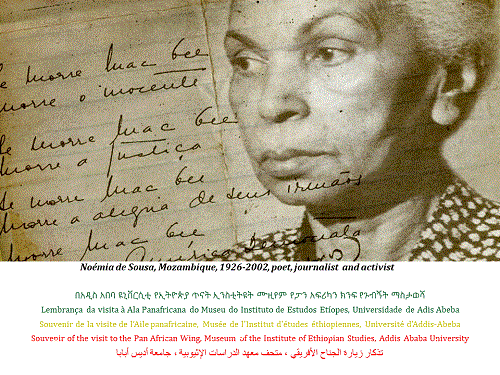 de morre Mac Gee
morre o inocente
de morre Mac Gee
morre a justiça
de morre Mac Gee
morre a alegria de seus irmãos
de morre Mac Gee
Noémia de Sousa, Mozambique, 1926-2002, poet, journalist and activist
በአዲስ አበባ ዩኒቨርሲቲ የኢትዮጵያ ጥናት ኢንስቲትዩት ሙዚየም የፓን አፍሪካን ክንፍ የጉብኝት ማስታወሻ
Lembrança da visita à Ala Panafricana do Museu do Instituto de Estudos Etíopes, Universidade de Adis Abeba
Souvenir de la visite de l'Aile panafricaine, Musée de l'Institut d'études éthiopiennes, Université d'Addis-Abeba
Souvenir of the visit to the Pan African Wing, Museum of the Institute of Ethiopian Studies, Addis Ababa University
تذكار زيارة الجناح الأفريقي ، متحف معهد الدراسات الإثيوبية ، جامعة أديس أبابا